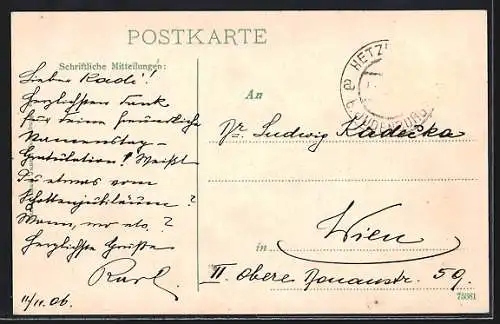 POSTKARTE
Schriftliche Mitteilungen:
Lieber Kadi!
Herzlichsten Dank
für Deine freundliche
Namenstag-
Gratulation! Weißt
Du etwas vom
Schottenjubiläum?
Wann, wo etc.?
Herzlichste Grüße
Karl.
11/11.06.
HETZ
b. JUDENBURG
An
Dr. Ludwig Kadečka
Wien
in
II. Obere Donaustr. 59.
75661